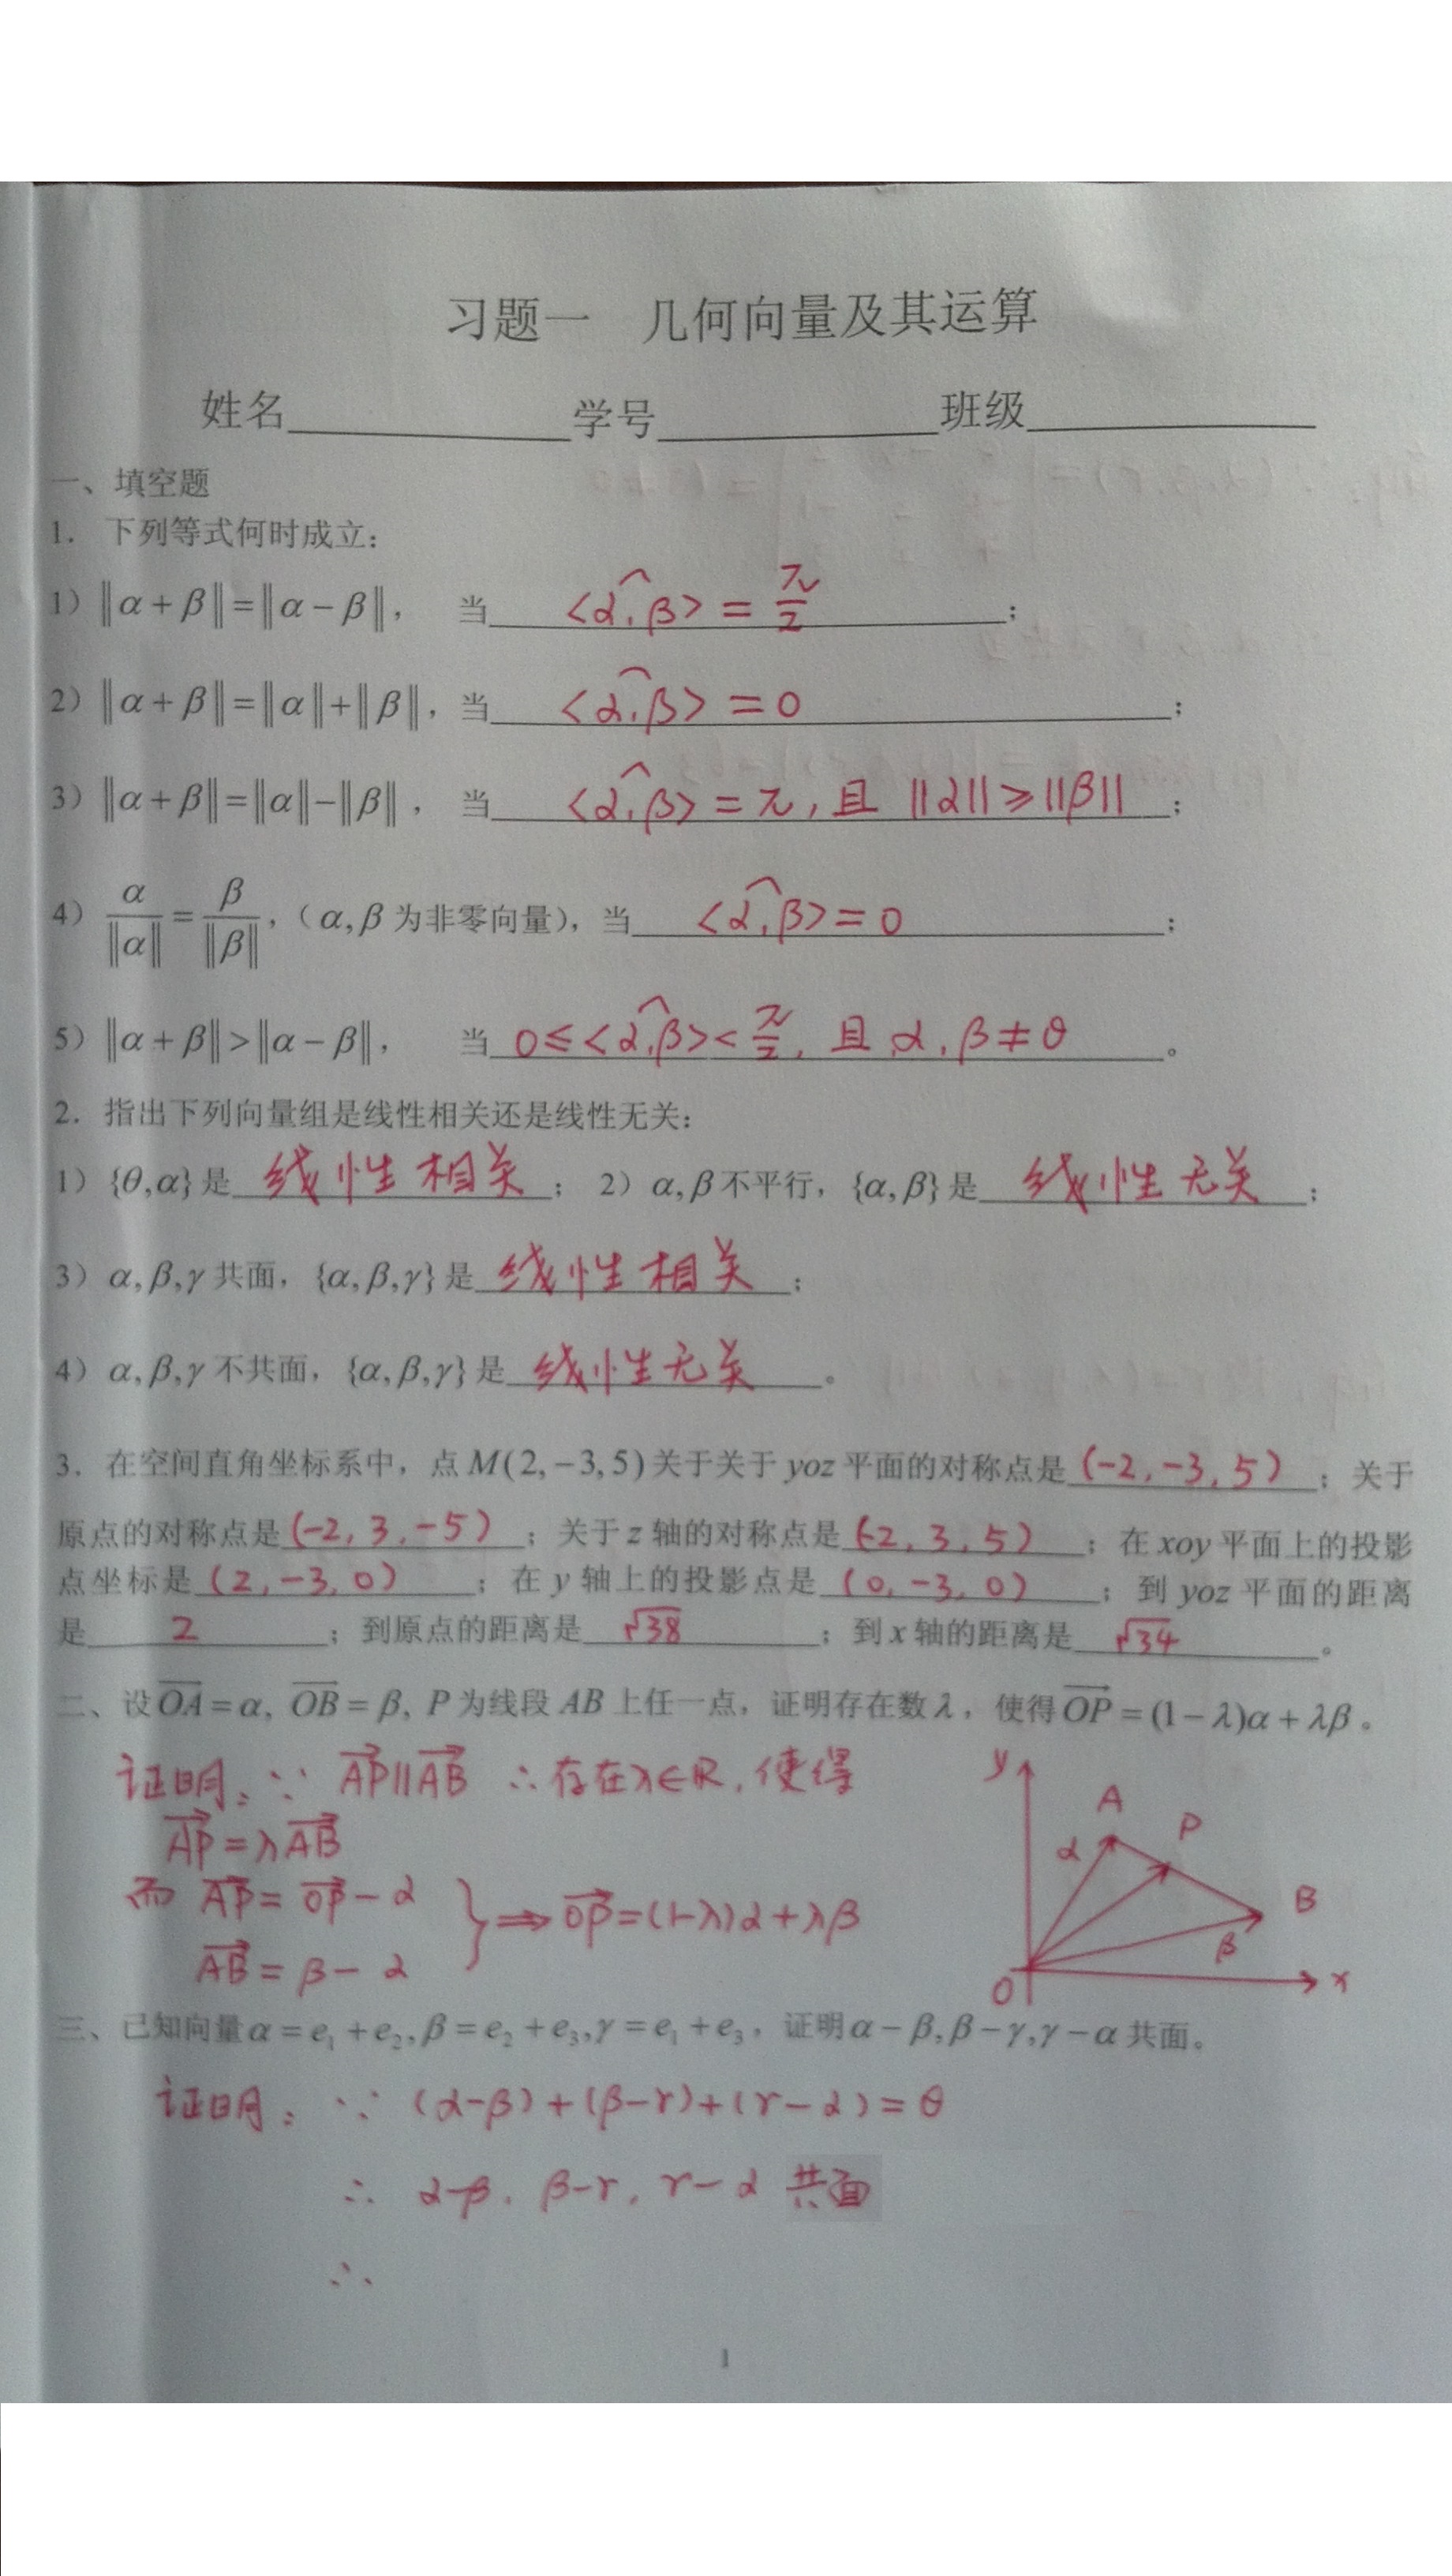 习题一 几何向量及其运算
姓名____________学号____________班级____________
一、填空题
1. 下列等式何时成立:
1) ‖α+β‖=‖α-β‖, 当 <α,β> = π/2 ;
2) ‖α+β‖=‖α‖+‖β‖, 当 <α,β> = 0 ;
3) ‖α+β‖=‖α‖-‖β‖, 当 <α,β> = π, 且 ‖α‖≥‖β‖ ;
4) α/‖α‖ = β/‖β‖, (α,β 为非零向量), 当 <α,β> = 0 ;
5) ‖α+β‖>‖α-β‖, 当 0≤<α,β><π/2, 且 α,β≠θ 。
2. 指出下列向量组是线性相关还是线性无关:
1) {θ,α}是 线性相关 ; 2) α,β不平行, {α,β}是 线性无关 ;
3) α,β,γ共面, {α,β,γ}是 线性相关 ;
4) α,β,γ不共面, {α,β,γ}是 线性无关 。
3. 在空间直角坐标系中, 点M(2,-3,5)关于关于yoz平面的对称点是 (-2,-3,5) ; 关于
原点的对称点是 (-2,3,-5) ; 关于z轴的对称点是 (-2,3,5) ; 在xoy平面上的投影
点坐标是 (2,-3,0) ; 在y轴上的投影点是 (0,-3,0) ; 到yoz平面的距离
是 2 ; 到原点的距离是 √38 ; 到x轴的距离是 √34 。
二、设OA⃗=α, OB⃗=β, P为线段AB上任一点, 证明存在数λ, 使得OP⃗=(1-λ)α+λβ。
证明: ∵ AP⃗∥AB⃗ ∴存在λ∈R, 使得
AP⃗=λAB⃗
而 AP⃗=OP⃗-α
AB⃗=β-α
} ⇒ OP⃗=(1-λ)α+λβ
y
A
P
α
B
β
O
x
三、已知向量α=e₁+e₂,β=e₂+e₃,γ=e₁+e₃, 证明α-β,β-γ,γ-α共面。
证明: ∵ (α-β)+(β-γ)+(γ-α)=θ
∴ α-β, β-γ, γ-α 共面
∴
1